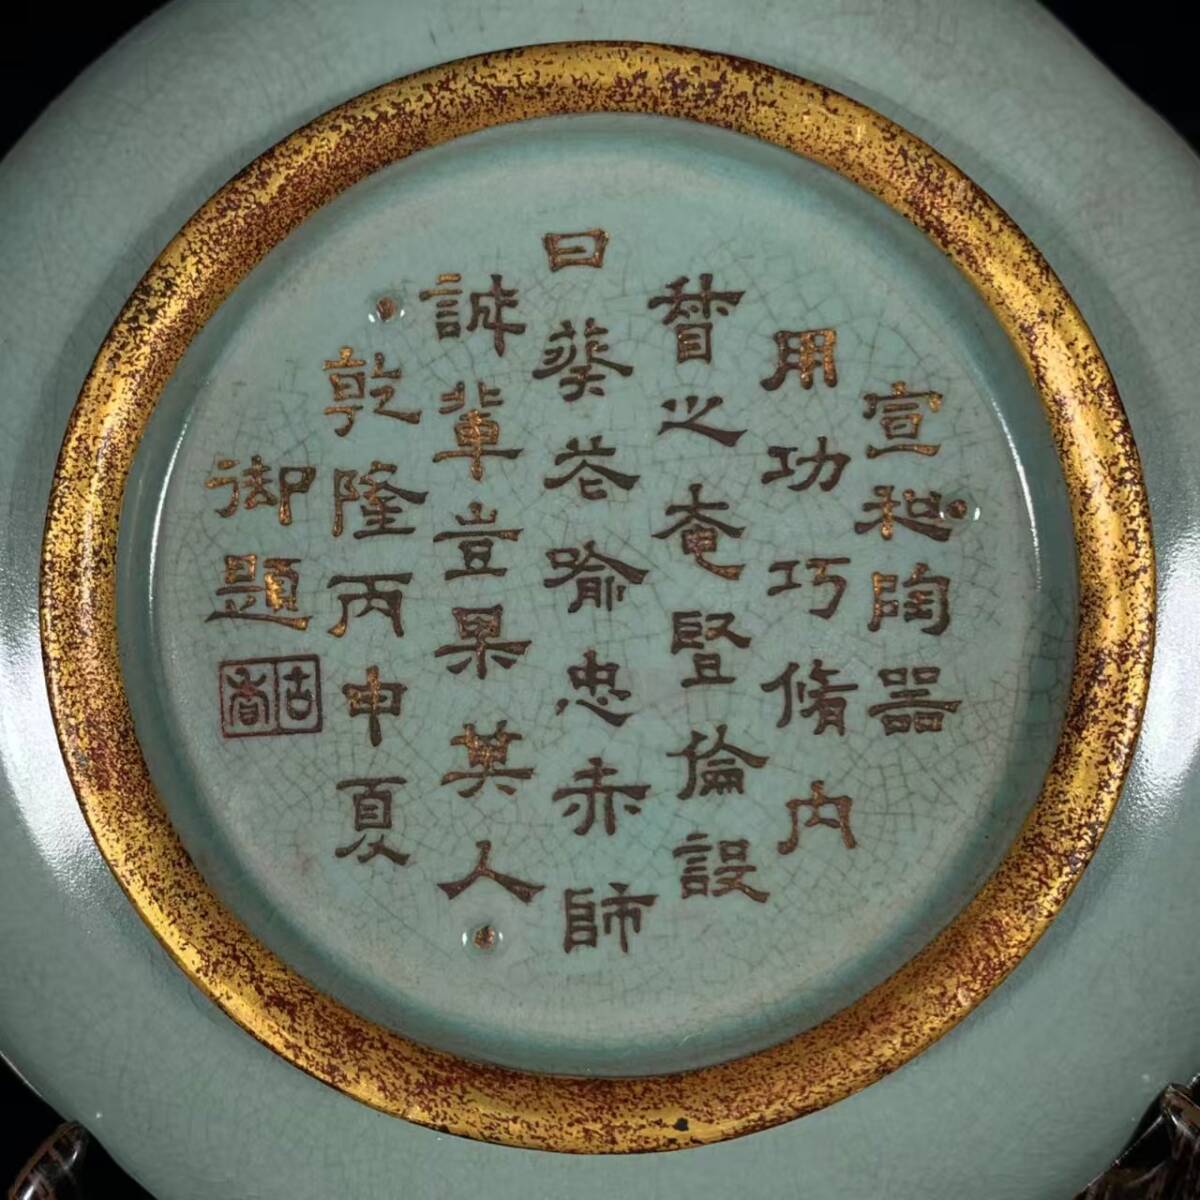 宣和陶器
用功巧脩内
督之奄豎倫設
曰葵花喻忠赤師
誠輩豈果其人
乾隆丙申夏
御題
古香